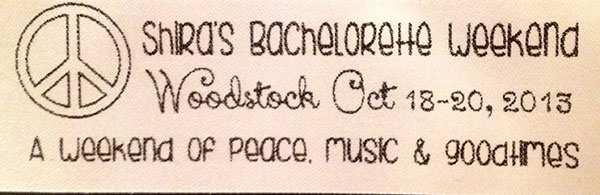 Shira's Bachelorette Weekend
Woodstock Oct 18-20, 2013
A Weekend of Peace, Music & goodtimes